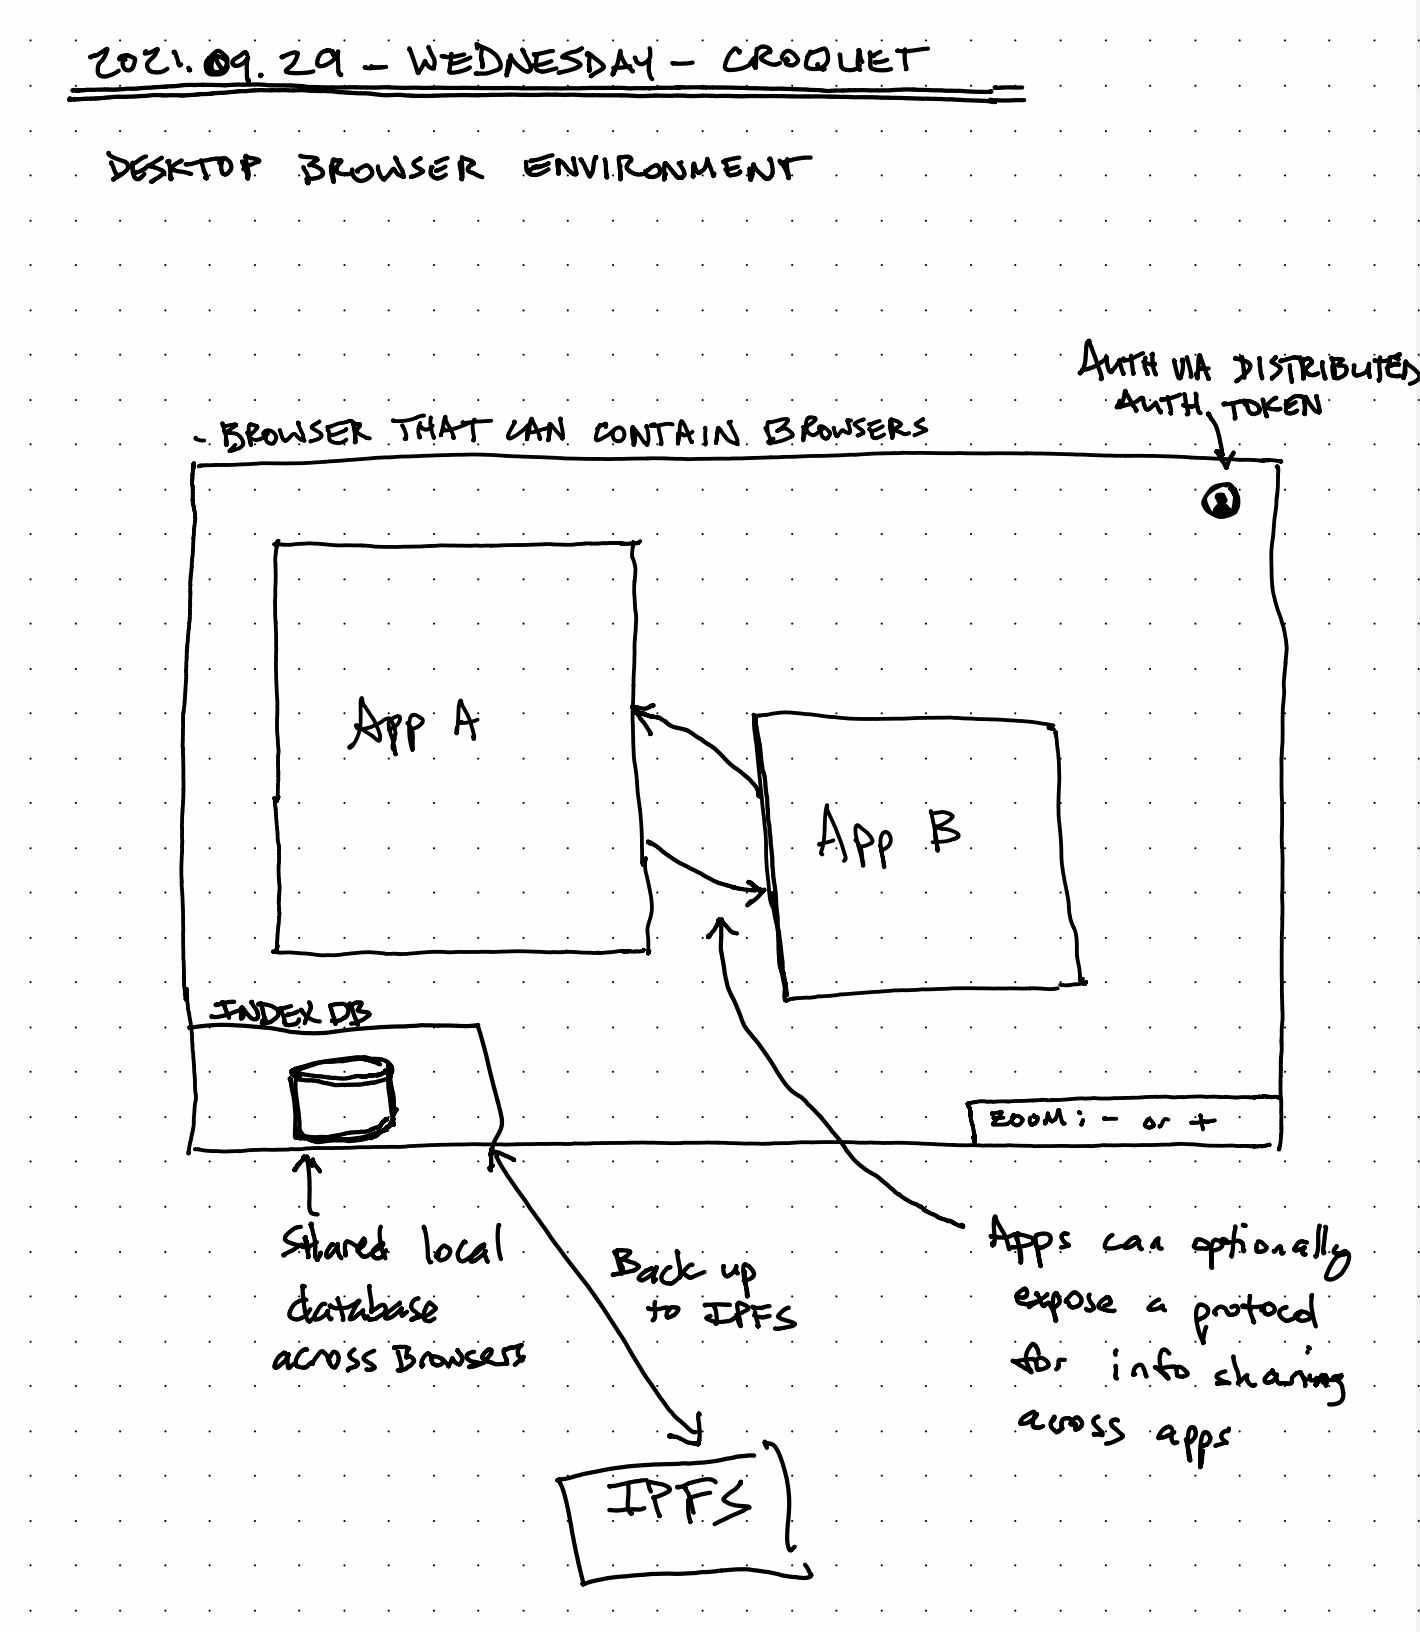 2021.09.29 - WEDNESDAY - CROQUET
DESKTOP BROWSER ENVIRONMENT
AUTH VIA DISTRIBUTED
AUTH. TOKEN
- BROWSER THAT CAN CONTAIN BROWSERS
App A
App B
INDEX DB
ZOOM: - or +
Shared local
database
across Browsers
Back up
to IPFS
Apps can optionally
expose a protocol
for info sharing
across apps
IPFS